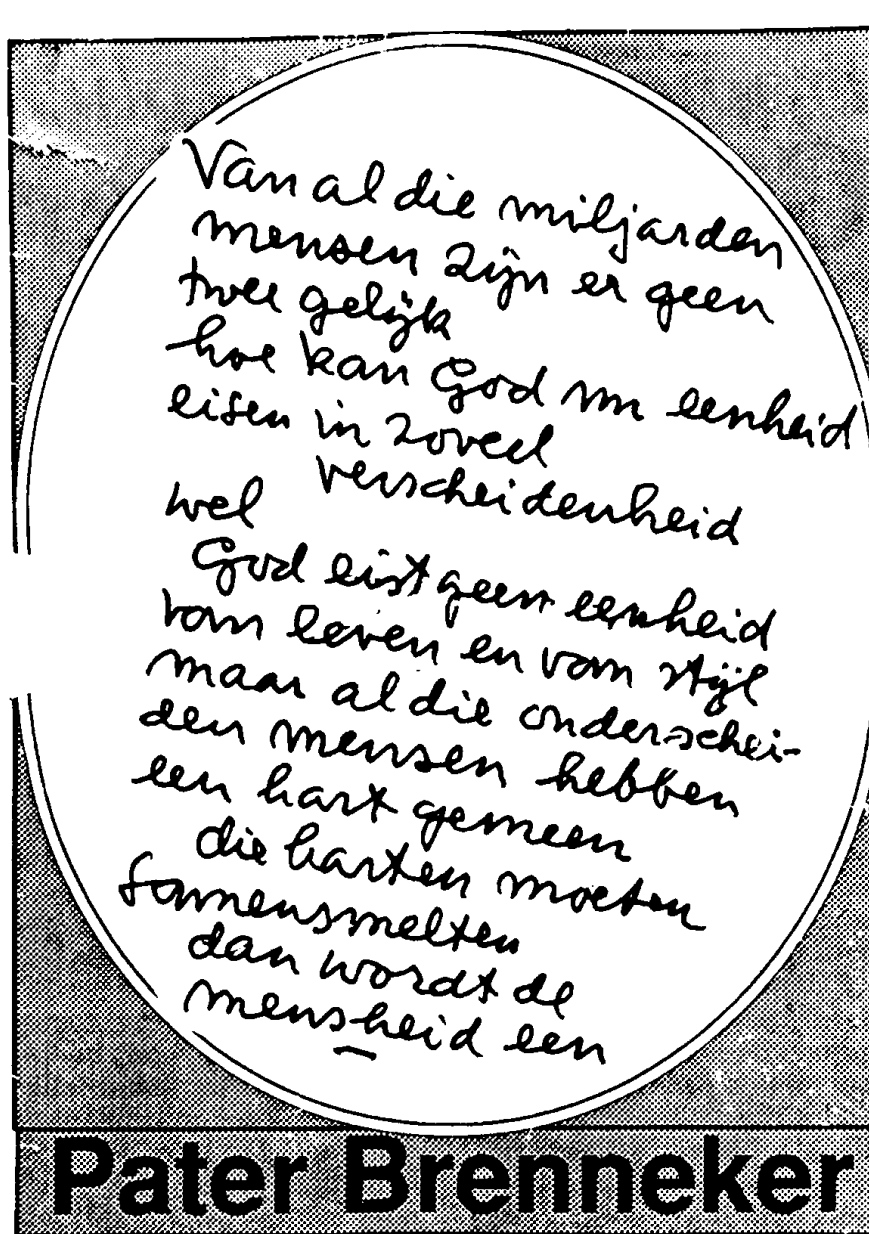 Van al die miljarden
mensen zijn er geen
twee gelijk
hoe kan God nu eenheid
eisen in zoveel
verscheidenheid
wel
God eist geen eenheid
van leven en van stijl
maar al die onderschei-
den mensen hebben
een hart gemeen
die harten moeten
samensmelten
dan wordt de
mensheid een
Pater Brenneker